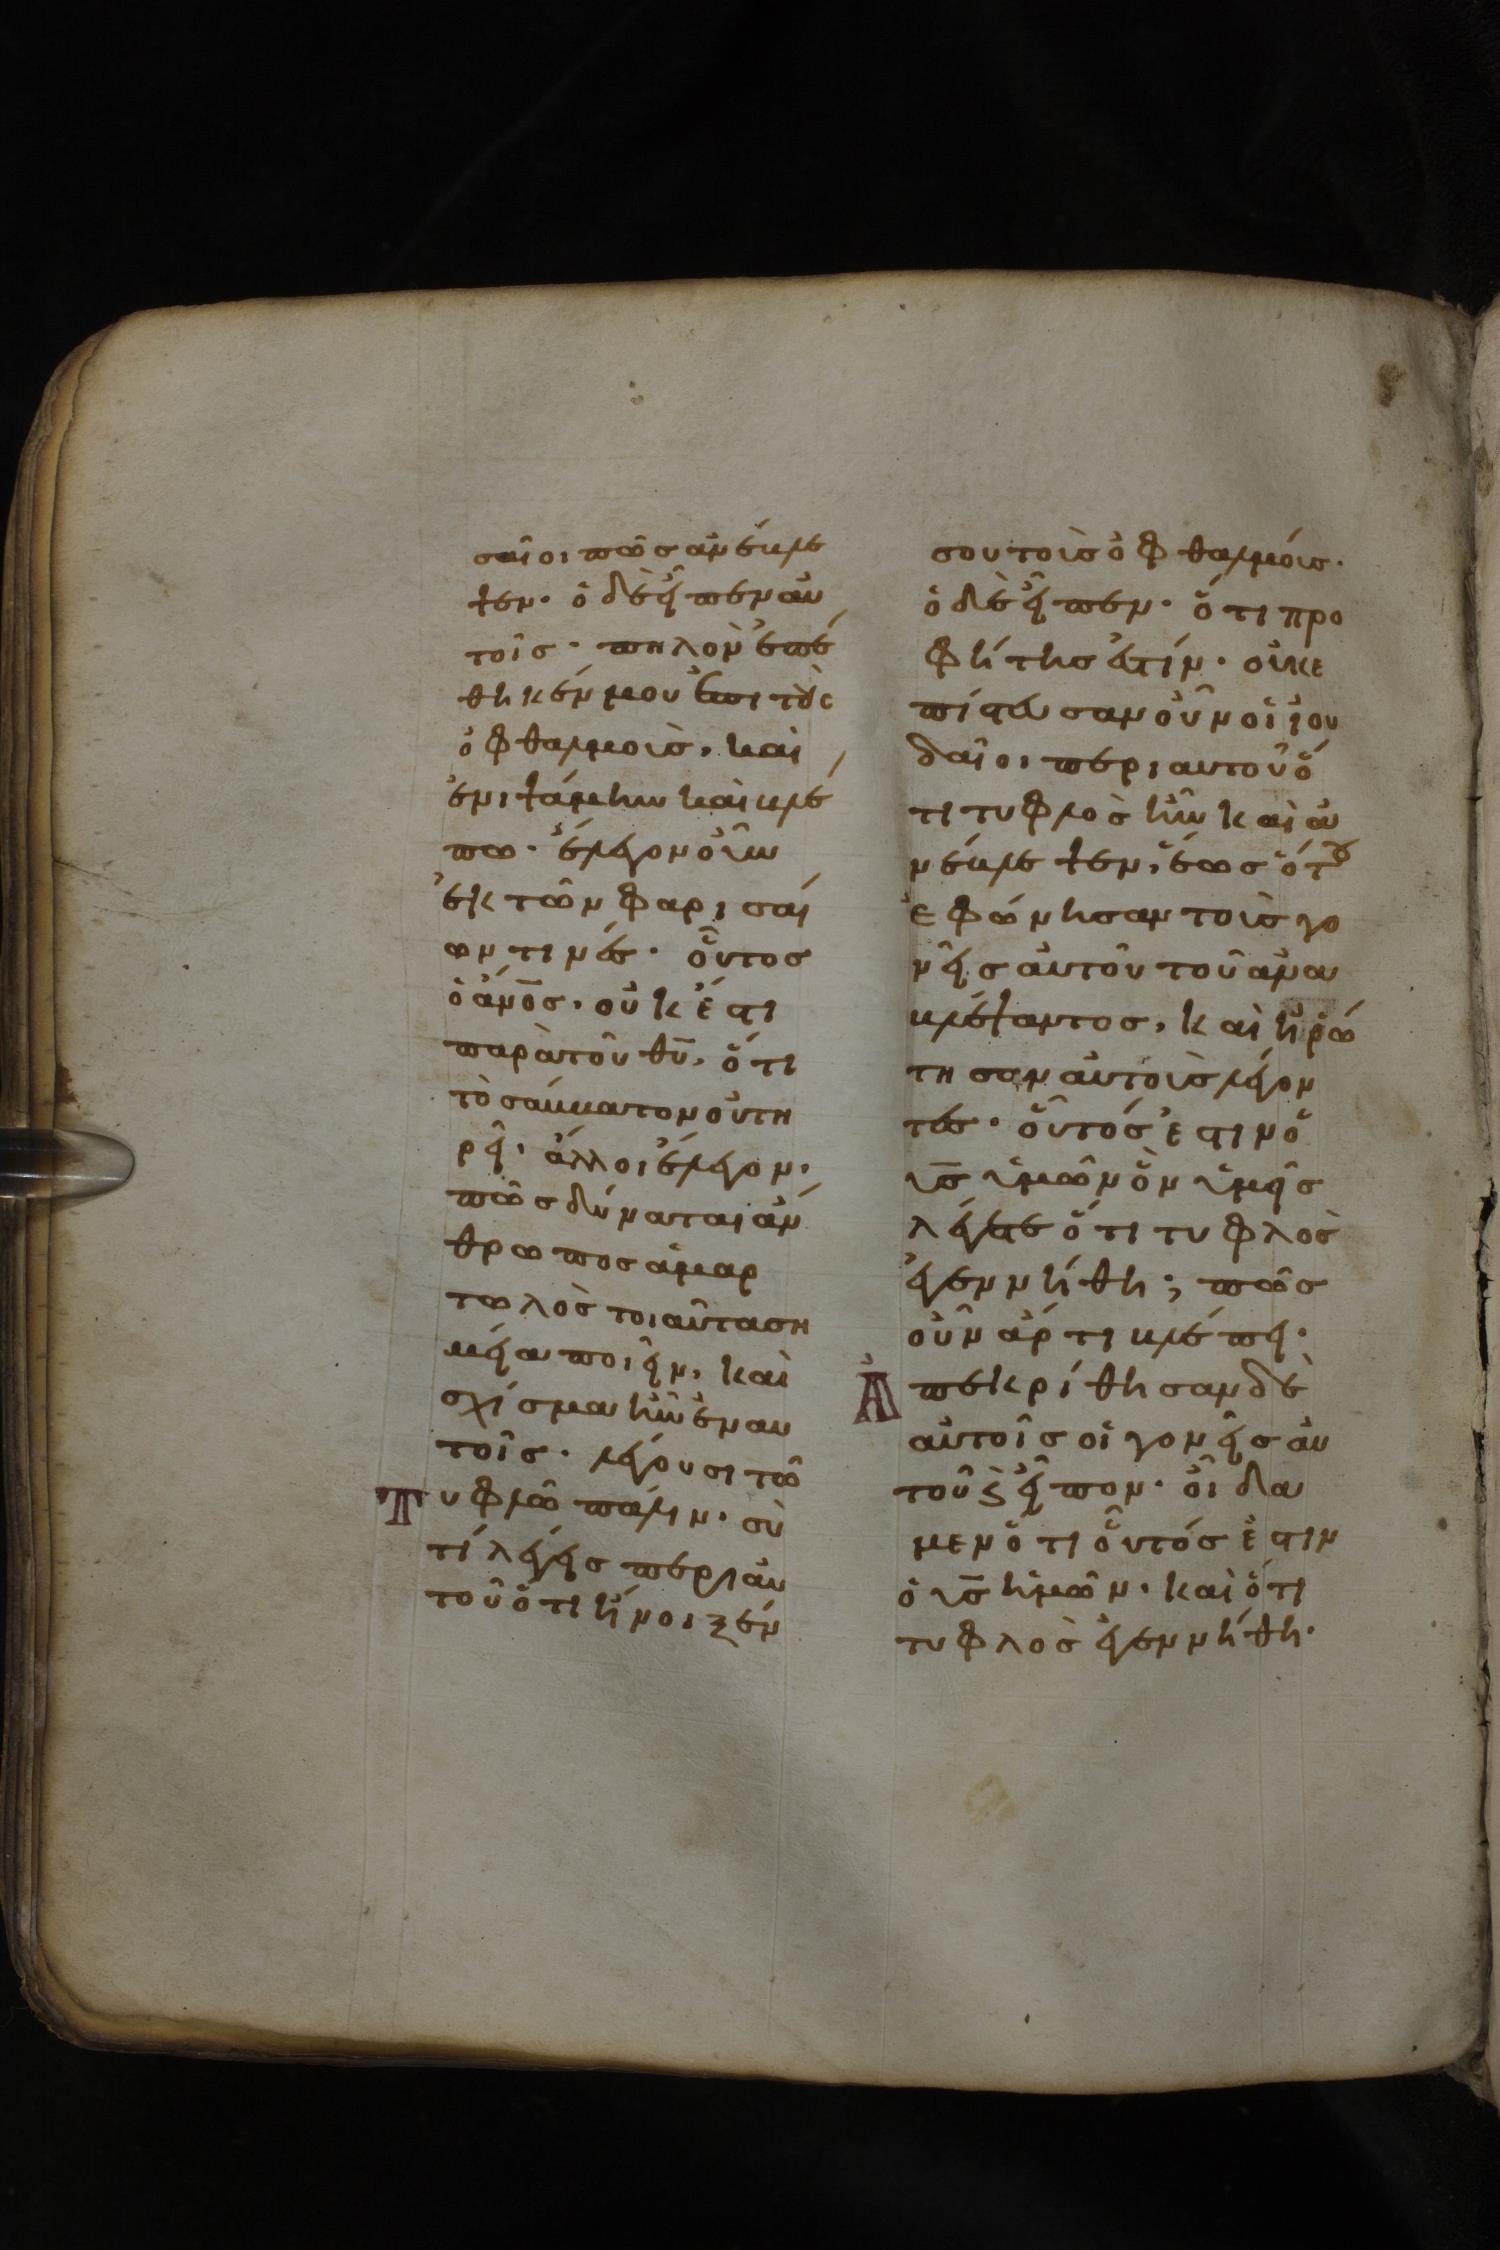 σαῖοι πῶς ἀνέβλε
ψεν· ὁ δὲ εἶπεν αὐ
τοῖς· πηλὸν ἐπέ
θηκέν μου ἐπὶ τοὺς
ὀφθαλμοὺς, καὶ
ἐνιψάμην καὶ βλέ
πω· ἔλεγον οὖν
ἐκ τῶν φαρισαί
ων τινές· οὗτος
ὁ ἄνος, οὐκ ἔστι
παρὰ τοῦ θυ, ὅτι
τὸ σάββατον οὐ τη
ρεῖ· ἄλλοι ἔλεγον·
πῶς δύναται ἄν
θρωπος ἁμαρ
τωλὸς τοιαῦτα ση
μεῖα ποιεῖν, καὶ
σχίσμα ἦν ἐν αὐ
τοῖς· λέγουσι τῶ
τυφλῶ πάλιν· σὺ
τί λέγεις περὶ αὐ
τοῦ ὅτι ἤνοιξέν
σου τοὺς ὀφθαλμούς·
ὁ δὲ εἶπεν· ὅτι προ
φήτης ἐστίν· οὐκ ἐ
πίστευσαν οὖν οἱ ἰου
δαῖοι περὶ αὐτοῦ ὅ
τι τυφλὸς ἦν καὶ ἀ
νέβλεψεν, ἕως ὅτου
ἐφώνησαν τοὺς γο
νεῖς αὐτοῦ τοῦ ἀνα
βλέψαντος, καὶ ἠρώ
τησαν αὐτοὺς λέγον
τες· οὗτός ἐστιν ὁ
υς ὑμῶν ὃν ὑμεῖς
λέγετε ὅτι τυφλὸς
ἐγεννήθη; πῶς
οὖν ἄρτι βλέπει·
Ἀπεκρίθησαν δὲ
αὐτοῖς οἱ γονεῖς αὐ
τοῦ ϗ εἶπον· οἴδα
μεν ὅτι οὗτός ἐστιν
ὁ υς ἡμῶν· καὶ ὅτι
τυφλὸς ἐγεννήθη·